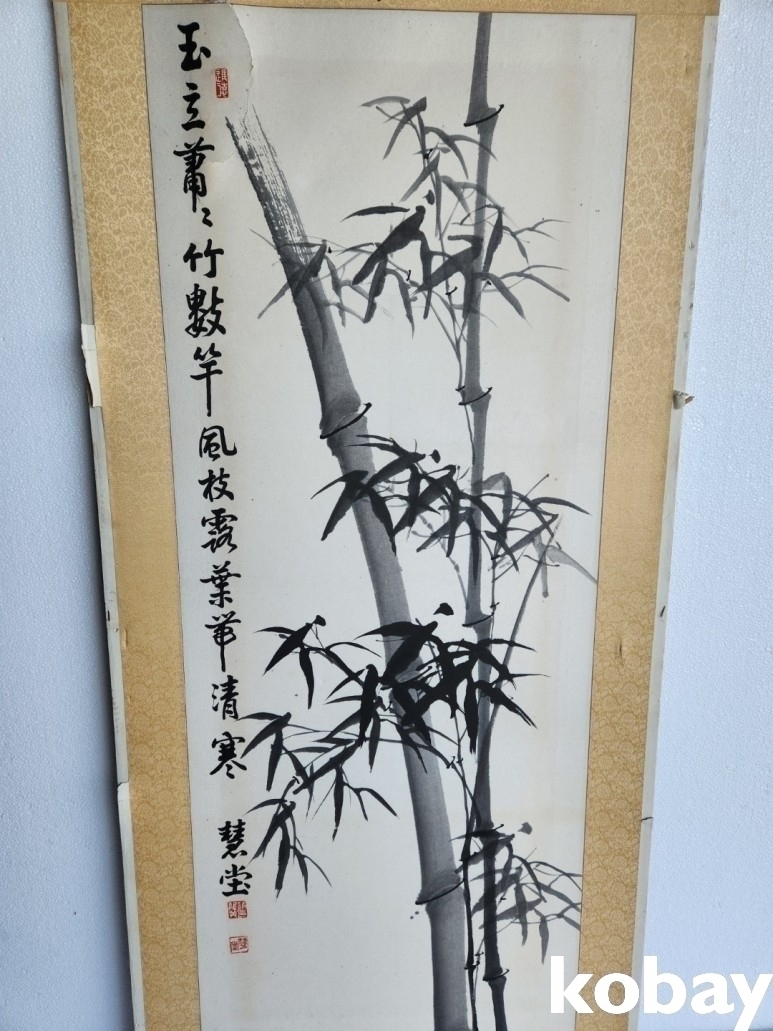 玉立蕭〻竹數竿風枝露葉帶清寒 慧堂
kobay